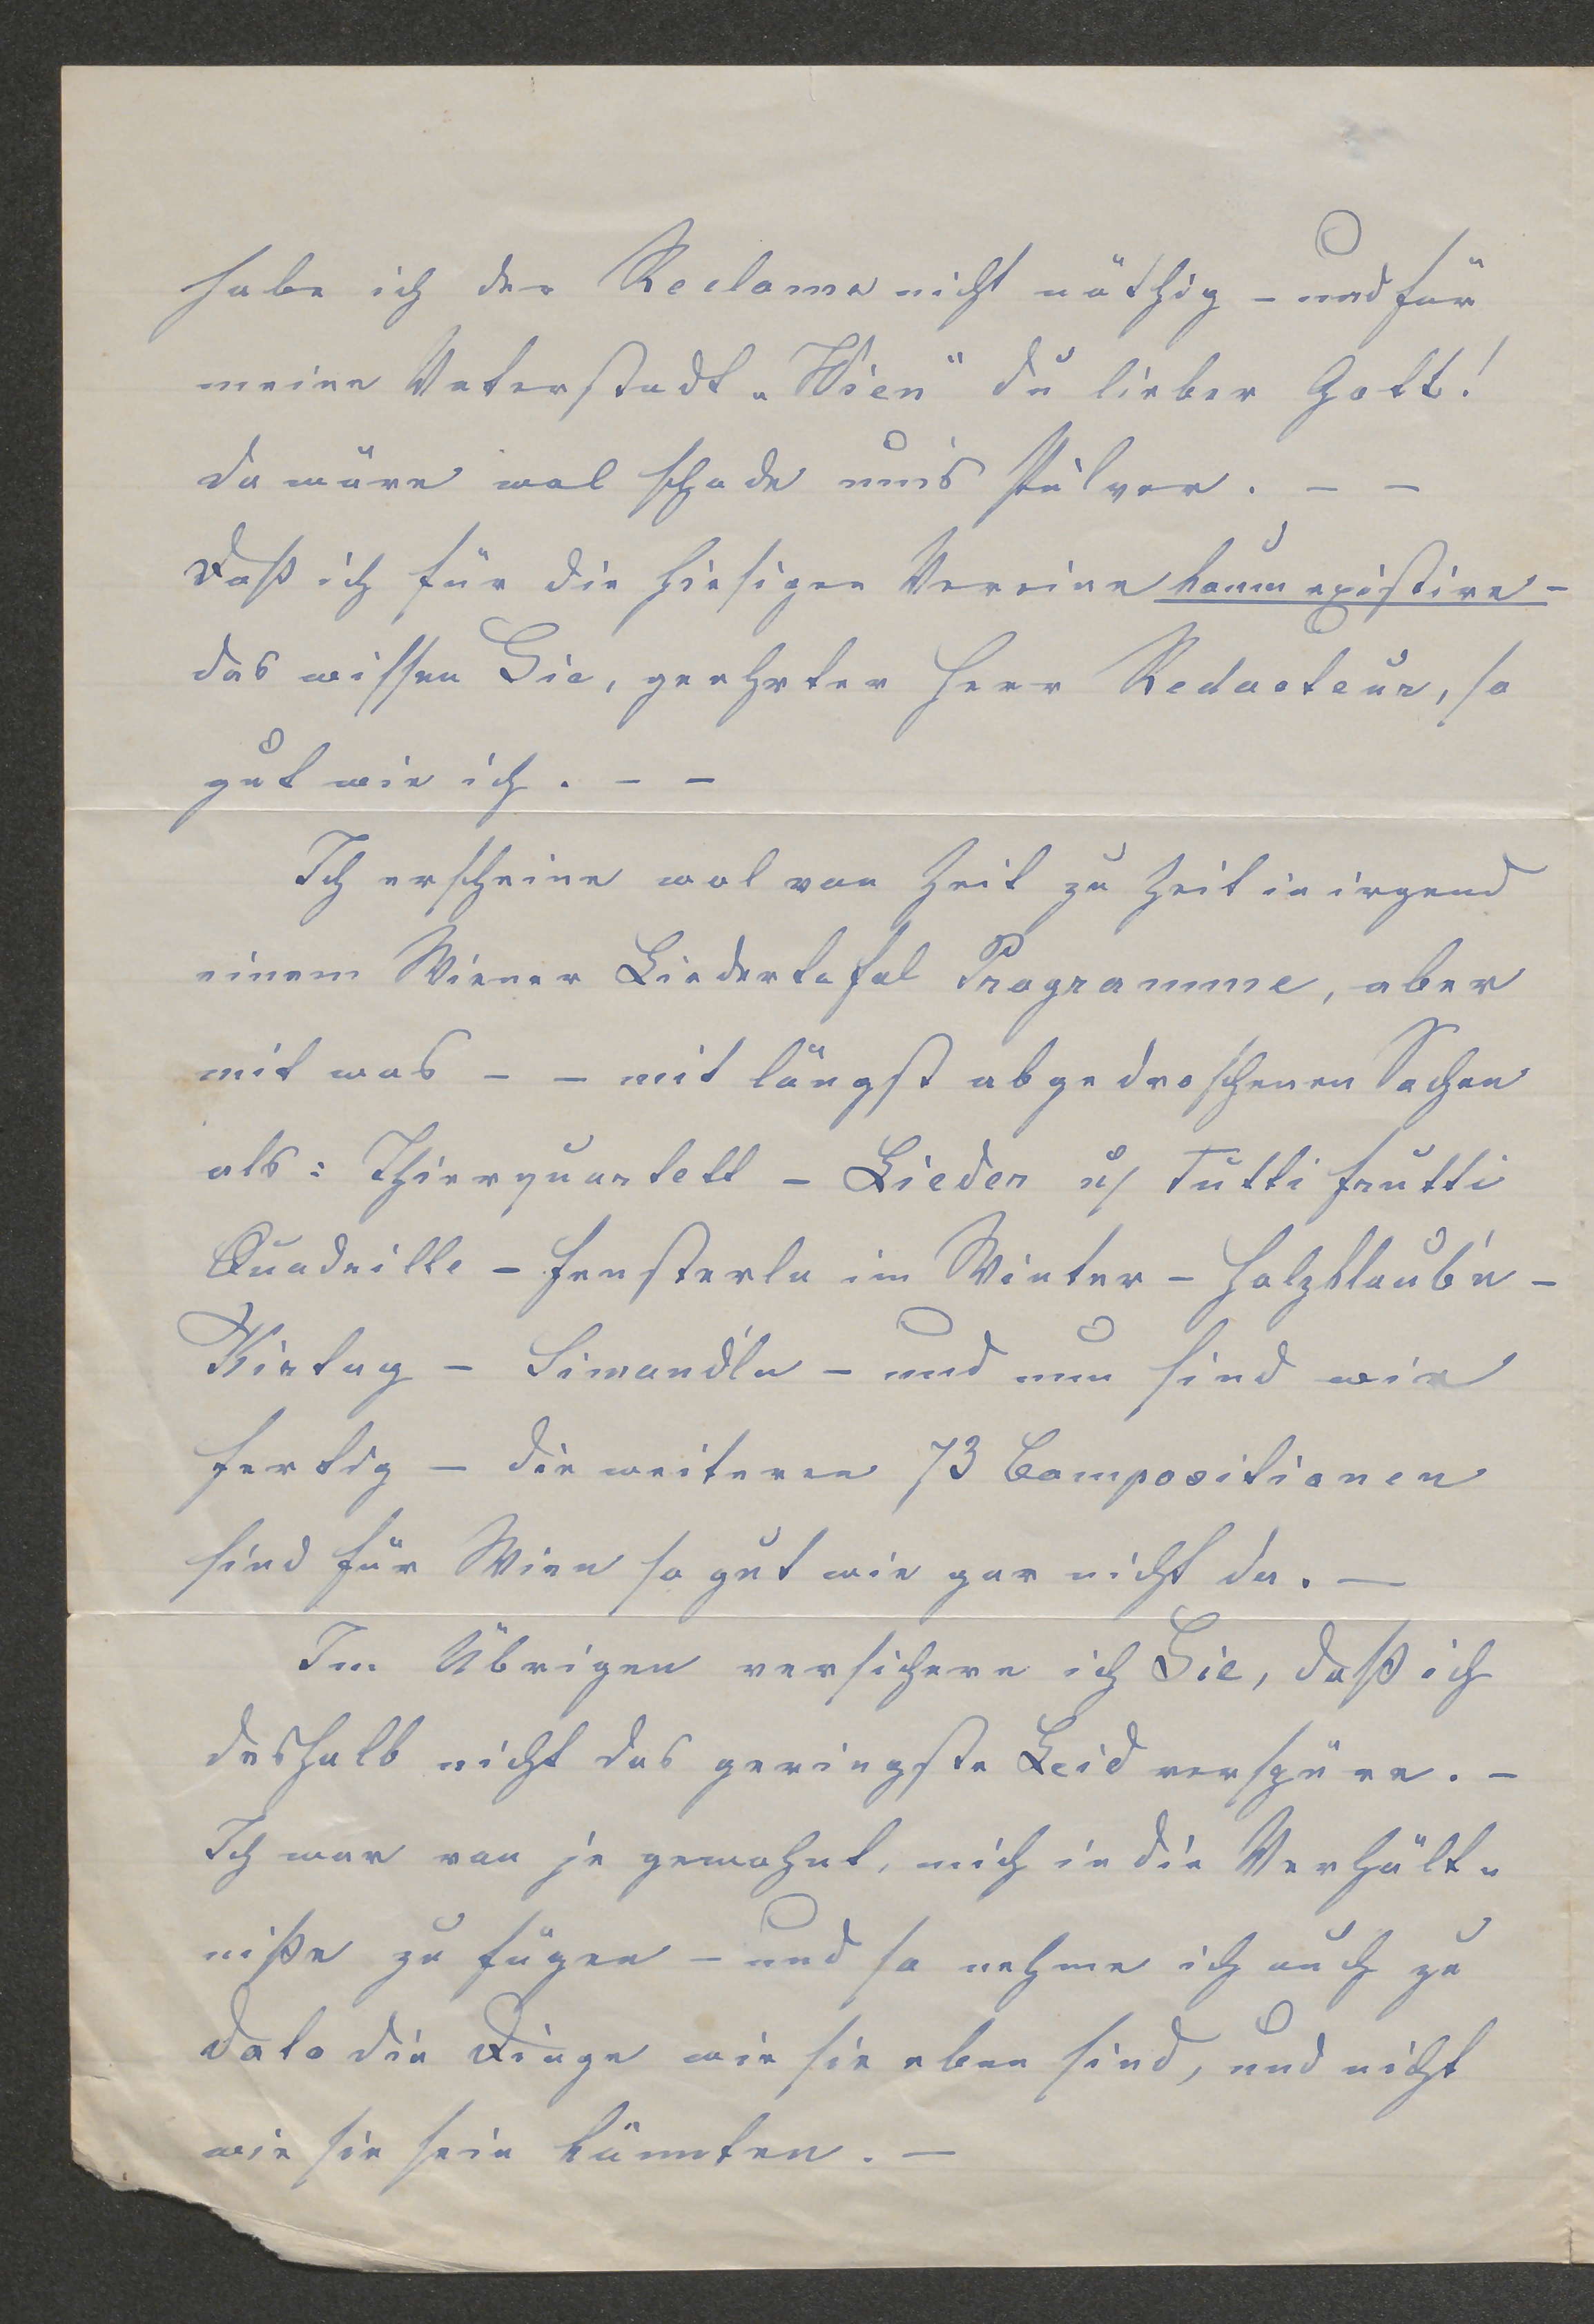 habe ich der Reclame nicht nöthig – und für
meine Vaterstadt „Wien“ du lieber Gott!
da wäre wol schade um's Pulver. – –
Daß ich für die hiesigen Vereine kaum existire –
das wissen Sie, geehrter Herr Redacteur, so
gut wie ich. – –
Ich erscheine wol von Zeit zu Zeit in irgend
einem Wiener Liedertafel Programme, aber
mit was – – mit längst abgedroschenen Sachen
als: Thierquartett – Lieder u/ Tutti frutti
Quadrille – Fensterln im Winter – Holzklaub'n –
Kirtag – Simandln – und nun sind wir
fertig – die weiteren 73 Compositionen
sind für Wien so gut wie gar nicht da. –
Im Übrigen versichere ich Sie, daß ich
deshalb nicht das geringste Leid verspüre. –
Ich war von je gewohnt, mich in die Verhält„
niße zu fügen – und so nehme ich auch zu
dato die Dinge wie sie eben sind, und nicht
wie sie sein könnten. –